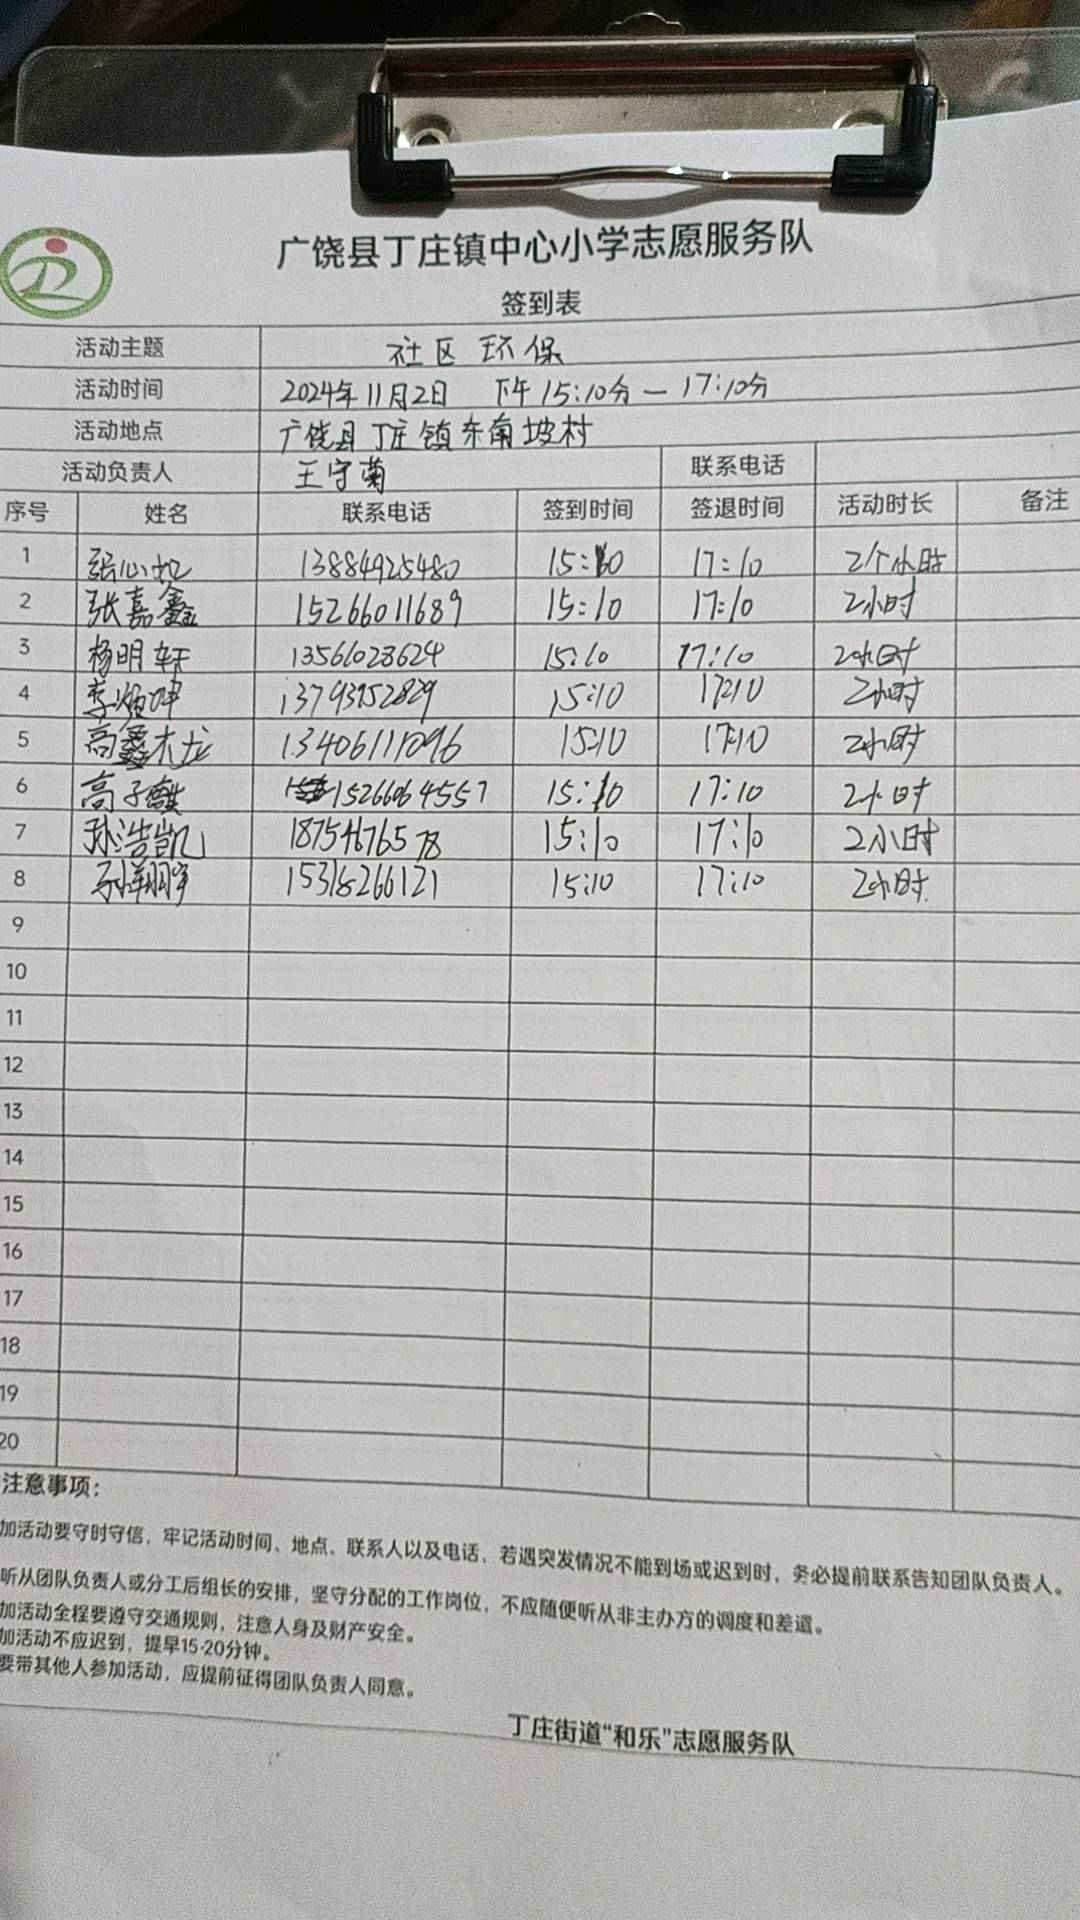 广饶县丁庄镇中心小学志愿服务队
签到表
活动主题 社区环保
活动时间 2024年11月2日 下午15:10分—17:10分
活动地点 广饶县丁庄镇东南坡村
活动负责人 王守菊 联系电话
序号 姓名 联系电话 签到时间 签退时间 活动时长 备注
1 张心如 13884925480 15:10 17:10 2个小时
2 张嘉鑫 15266011689 15:10 17:10 2小时
3 杨明轩 13561028624 15:10 17:10 2小时
4 13793152829 15:10 17:10 2小时
5 高鑫龙 13406111096 15:10 17:10 2小时
6 高子 15266064557 15:10 17:10 2小时
7 孙浩凯 18754676578 15:10 17:10 2小时
8 孙翔宇 15318266121 15:10 17:10 2小时
9
10
11
12
13
14
15
16
17
18
19
20
注意事项：
加活动要守时守信，牢记活动时间、地点、联系人以及电话，若遇突发情况不能到场或迟到时，务必提前联系告知团队负责人。
听从团队负责人或分工后组长的安排，坚守分配的工作岗位，不应随便听从非主办方的调度和差遣。
加活动全程要遵守交通规则，注意人身及财产安全。
加活动不应迟到，提早15-20分钟。
要带其他人参加活动，应提前征得团队负责人同意。
丁庄街道“和乐”志愿服务队